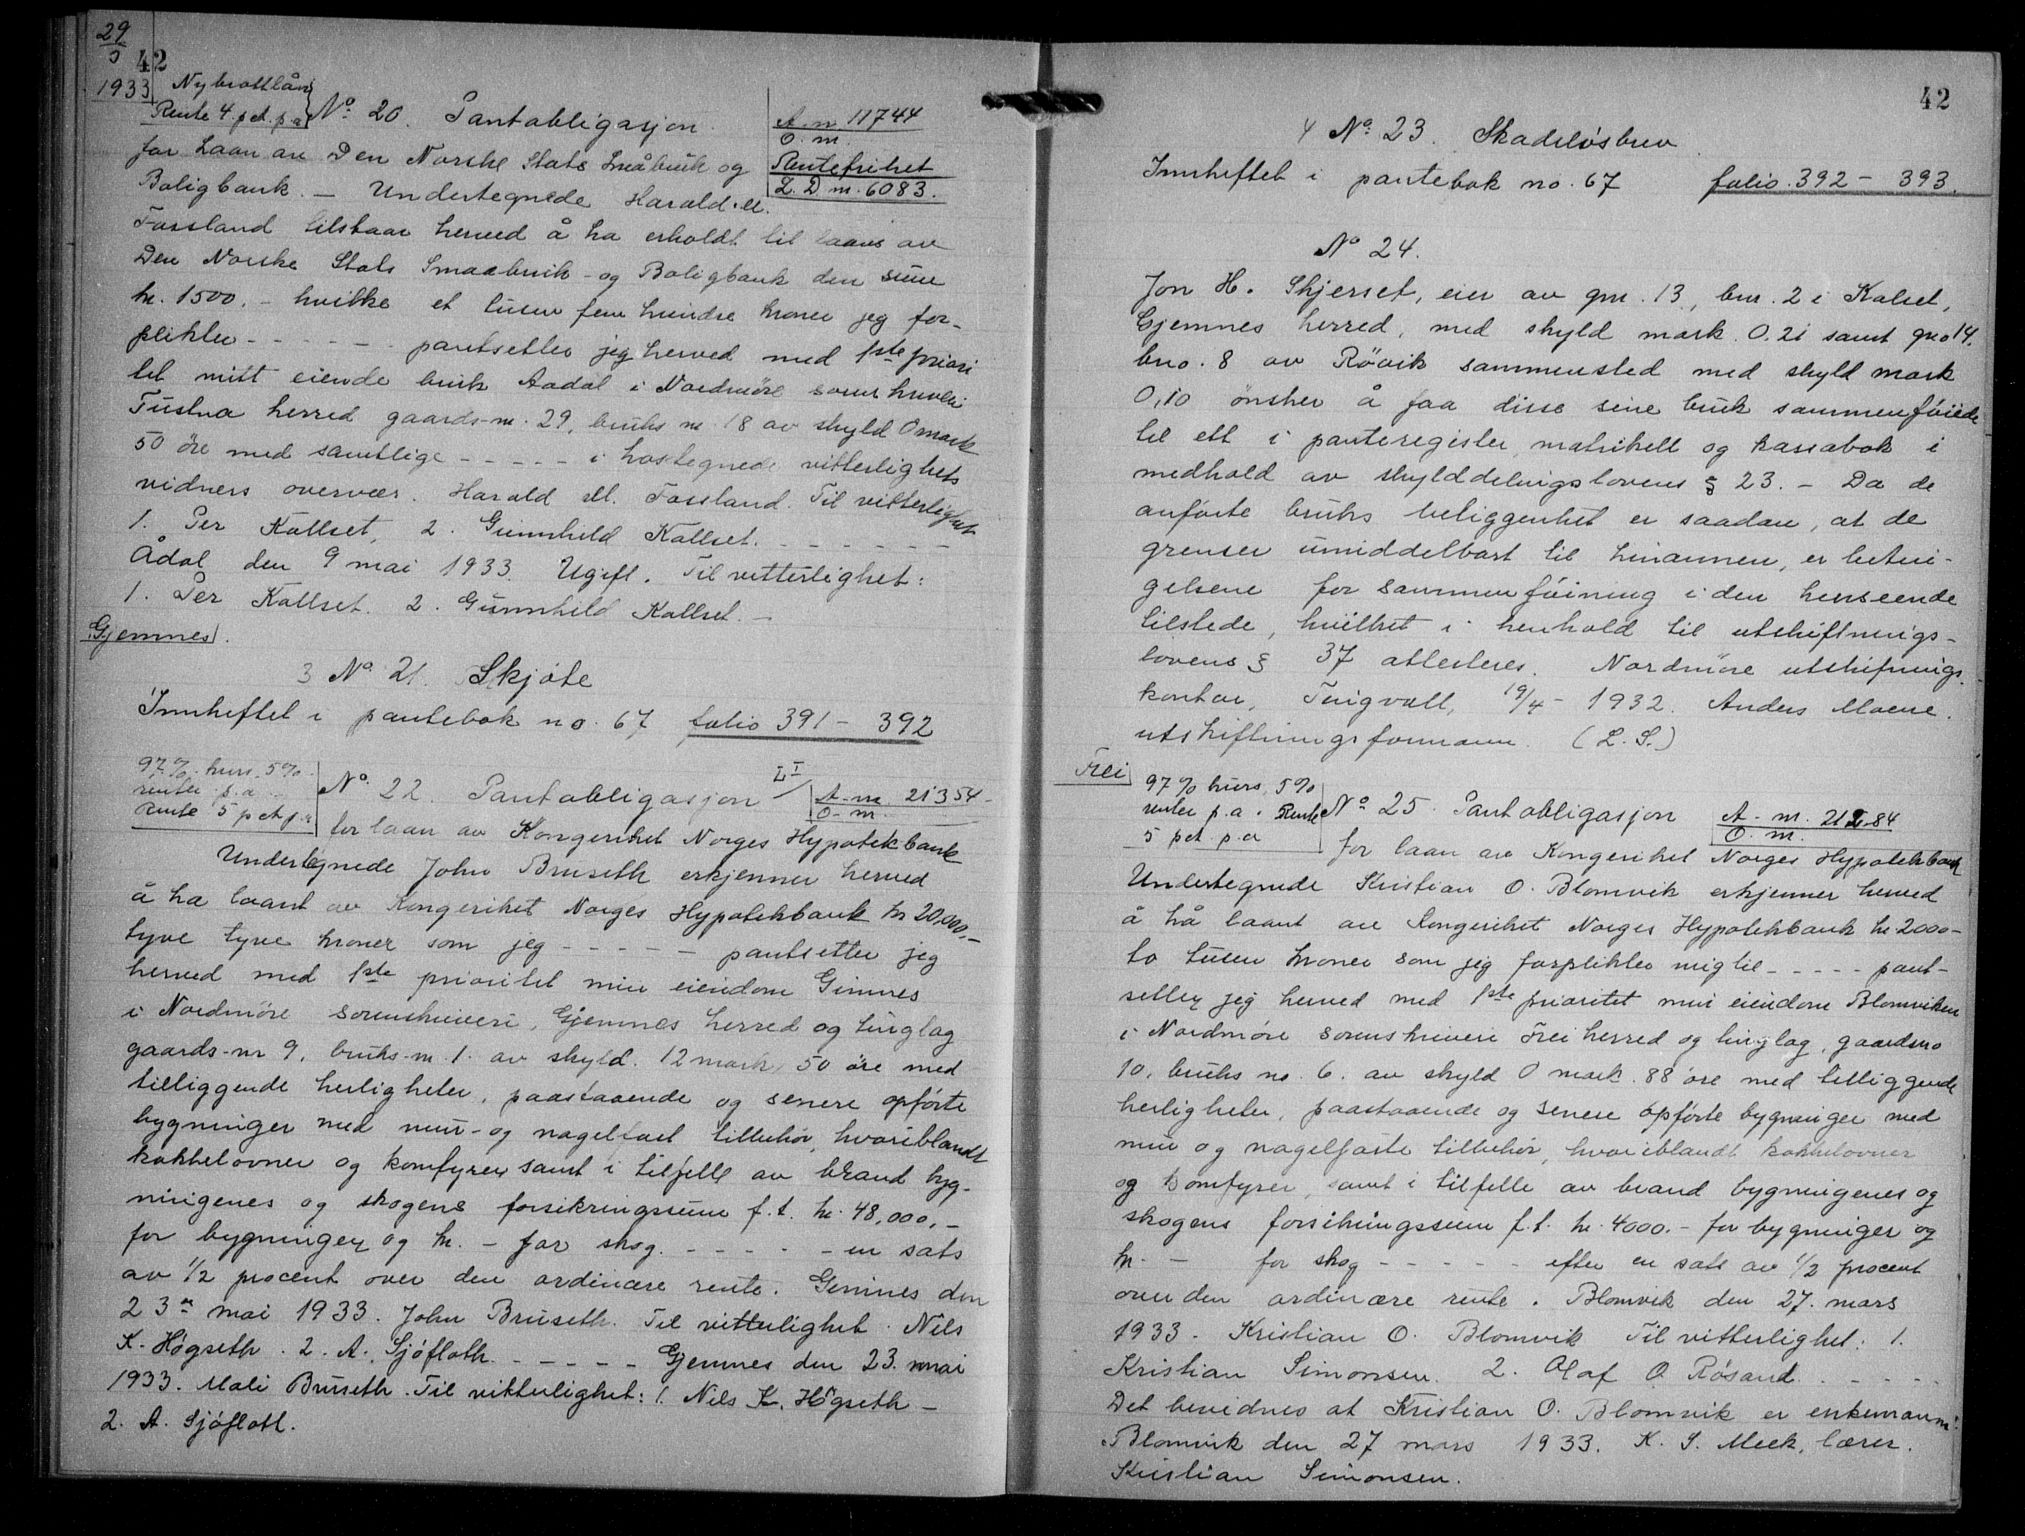 29/5
42
1933
Nybrottlån
Rente 4 pct. p.a
No. 20. Pantobligasjon.
A. nr 11744
O. nr.
for Laan av Den Norske Stats Småbruk og
Rentefrihet
L. D nr. 6083.
Boligbank. — Undertegnede Harald M.
Fossland tilstaar herved å ha erholdt til laans av
Den Norske Stats Smaabruk- og Boligbank den sum
kr. 1500.- hvilke et tusen fem hundre kroner jeg for-
plikter - - - - - - pantsetter jeg herved med 1ste priori
tet mitt eiende bruk Aadal i Nordmøre sorenskriveri
Tustna herred gaards-nr. 29, bruks nr. 18 av skyld 0 mark
50 øre med samtlige - - - - - i hostegnede vitterlighets
vidners overvær. Harald M. Fossland. Til vitterlighet
1. Per Kallset, 2. Gunnhild Kallset. - - - - - -
Ådal den 9 mai 1933. Ugift. Til vitterlighet:
1. Per Kallset. 2. Gunnhild Kallset. -
Gjemnes.
3 No. 21. Skjøte
Innheftet i pantebok no. 67 folio 391 - 392
97 % kurs. 5%
renter p.a
Rente 5 pct p.a
No. 22. Pantobligasjon
L I
A-nr. 21354-
O-nr.
for laan av Kongeriket Norges Hypotekbank
Undertegnede John Bruseth erkjenner herved
å ha laant av Kongeriket Norges Hypotekbank kr 20,000.-
tyve tyve kroner som jeg - - - - - pantsetter jeg
herved med 1ste prioritet min eiendom Gimnes
i Nordmøre sorenskriveri, Gjemnes herred og tinglag
gaards-nr 9, bruks-nr. 1. av skyld. 12 mark 50 øre med
tilliggende herligheter, paastaaende og senere opførte
bygninger med mur- og nagelfast tilbehør, hvoriblandt
kakkelovner og komfyrer samt i tilfelle av brand byg-
ningenes og skogens forsikringssum f.t. kr. 48,000.-
for bygninger og kr. - for skog. - - - - - en sats
av 1/2 procent over den ordinære rente. Gimnes den
23 mai 1933. John Bruseth. Til vitterlighet. Nils
K. Høgseth. 2. A. Sjøfloth. - - - - - Gjemnes den 23. mai
1933. Mali Bruseth. Til vitterlighet: 1. Nils K. Høgseth -
2. A. Sjøflott.
42
4 No. 23. Skadeløsbrev
Innheftet i pantebok no. 67 folio. 392 - 393.
No 24.
Jon H. Skjerset, eier av gnr. 13, bnr. 2 i Kalset,
Gjemnes herred, med skyld mark. 0.21 samt gno 14.
bno. 8 av Røvik sammensted med skyld mark
0,10 ønsker å faa disse sine bruk sammenføiede
til ett i panteregister, matrikell og kassabok i
medhold av skylddelingslovens § 23. - Da de
anførte bruks beliggenhet er saadan, at de
grenser umiddelbart til hinannen, er betin-
gelsene for sammenføining i den henseende
tilstede, hvilket i henhold til utskiftnings-
lovens § 37 attesteres. Nordmøre utskifnings.
kontor, Tingvoll, 19/4 - 1932. Anders Moene.
utskiftningsformann. (L. S.)
Frei
97 % kurs. 5%
renter p.a. Rente
5 pct p.a
No 25. Pantobligasjon
A - nr. 21284
O. nr.
for laan av Kongeriket Norges Hypotekbank
Undertegnede Kristian O. Blomvik erkjenner herved
å hå laant av Kongeriket Norges Hypotekbank kr 2000-
to tusen kroner som jeg forplikter mig til - - - - - pant-
setter jeg herved med 1ste prioritet min eiendom Blomviken
i Nordmøre sorenskriveri Frei herred og tinglag, gaardsno
10, bruks no. 6. av skyld 0 mark. 88 øre med tilliggende
herligheter, paastaaende og senere opførte bygninger med
mur og nagelfaste tilbehør, hvoriblandt kakkelovner
og komfyrer, samt i tilfelle av brand bygningenes og
skogens forsikringssum f.t. kr. 4000.- for bygninger og
kr. - for skog - - - - - efter en sats av 1/2 procent
over den ordinære rente. Blomvik den 27. mars
1933. Kristian O. Blomvik Til vitterlighet: 1.
Kristian Simonsen. 2. Olaf O. Røsand. - - - -
Det bevidnes at Kristian O. Blomvik er enkemann:
Blomvik den 27 mars 1933. K. S. Meek, lærer.
Kristian Simonsen.